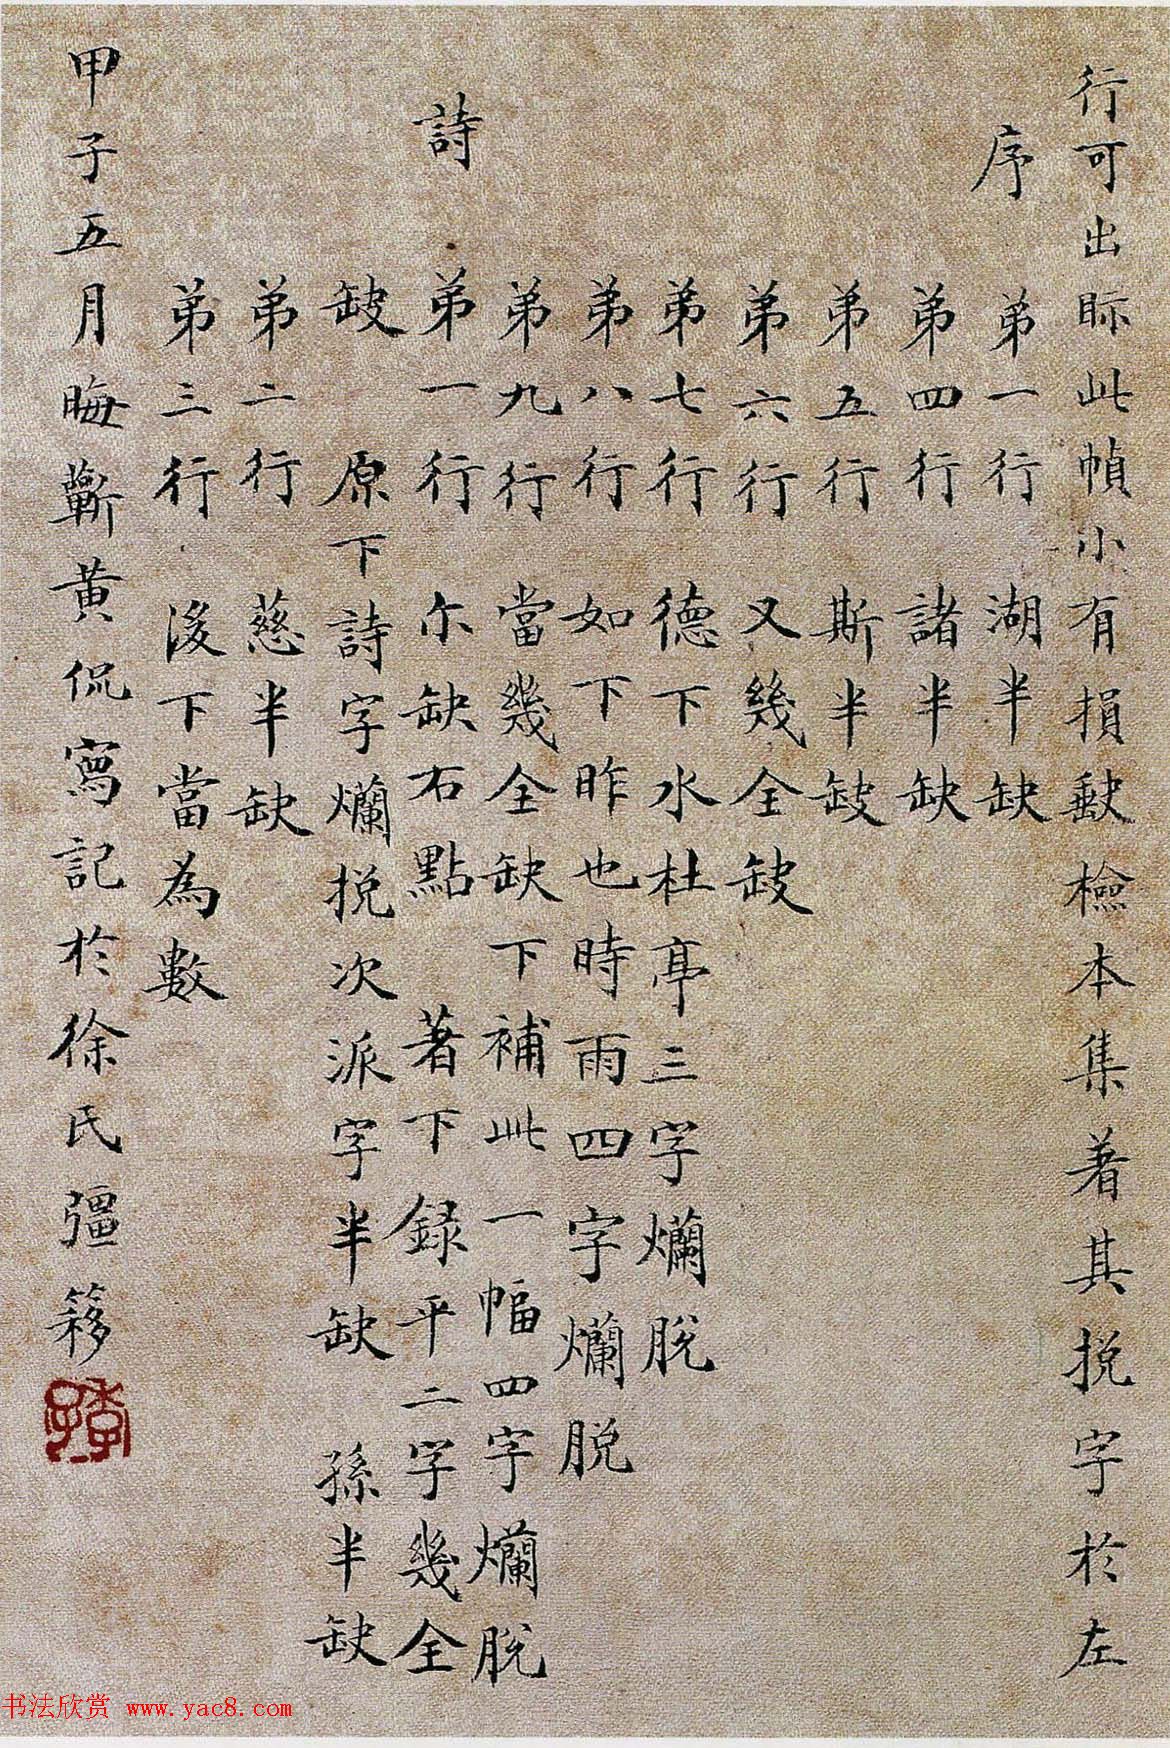 行可出眎此幀小有損缺檢本集著其挩字於左
序
弟一行 湖半缺
弟四行 諸半缺
弟五行 斯半缺
弟六行 又幾全缺
弟七行 德下水杜亭三字爛脫
弟八行 如下昨也時雨四字爛脫
弟九行 當幾全缺下補此一幅四字爛脫
詩
弟一行 尒缺右點 著下錄平二字幾全
缺 原下詩字爛挩次派字半缺 孫半缺
弟二行 慈半缺
弟三行 後下當為數
甲子五月晦蘄黃侃寫記於徐氏彊簃
书法欣赏 www.yac8.com